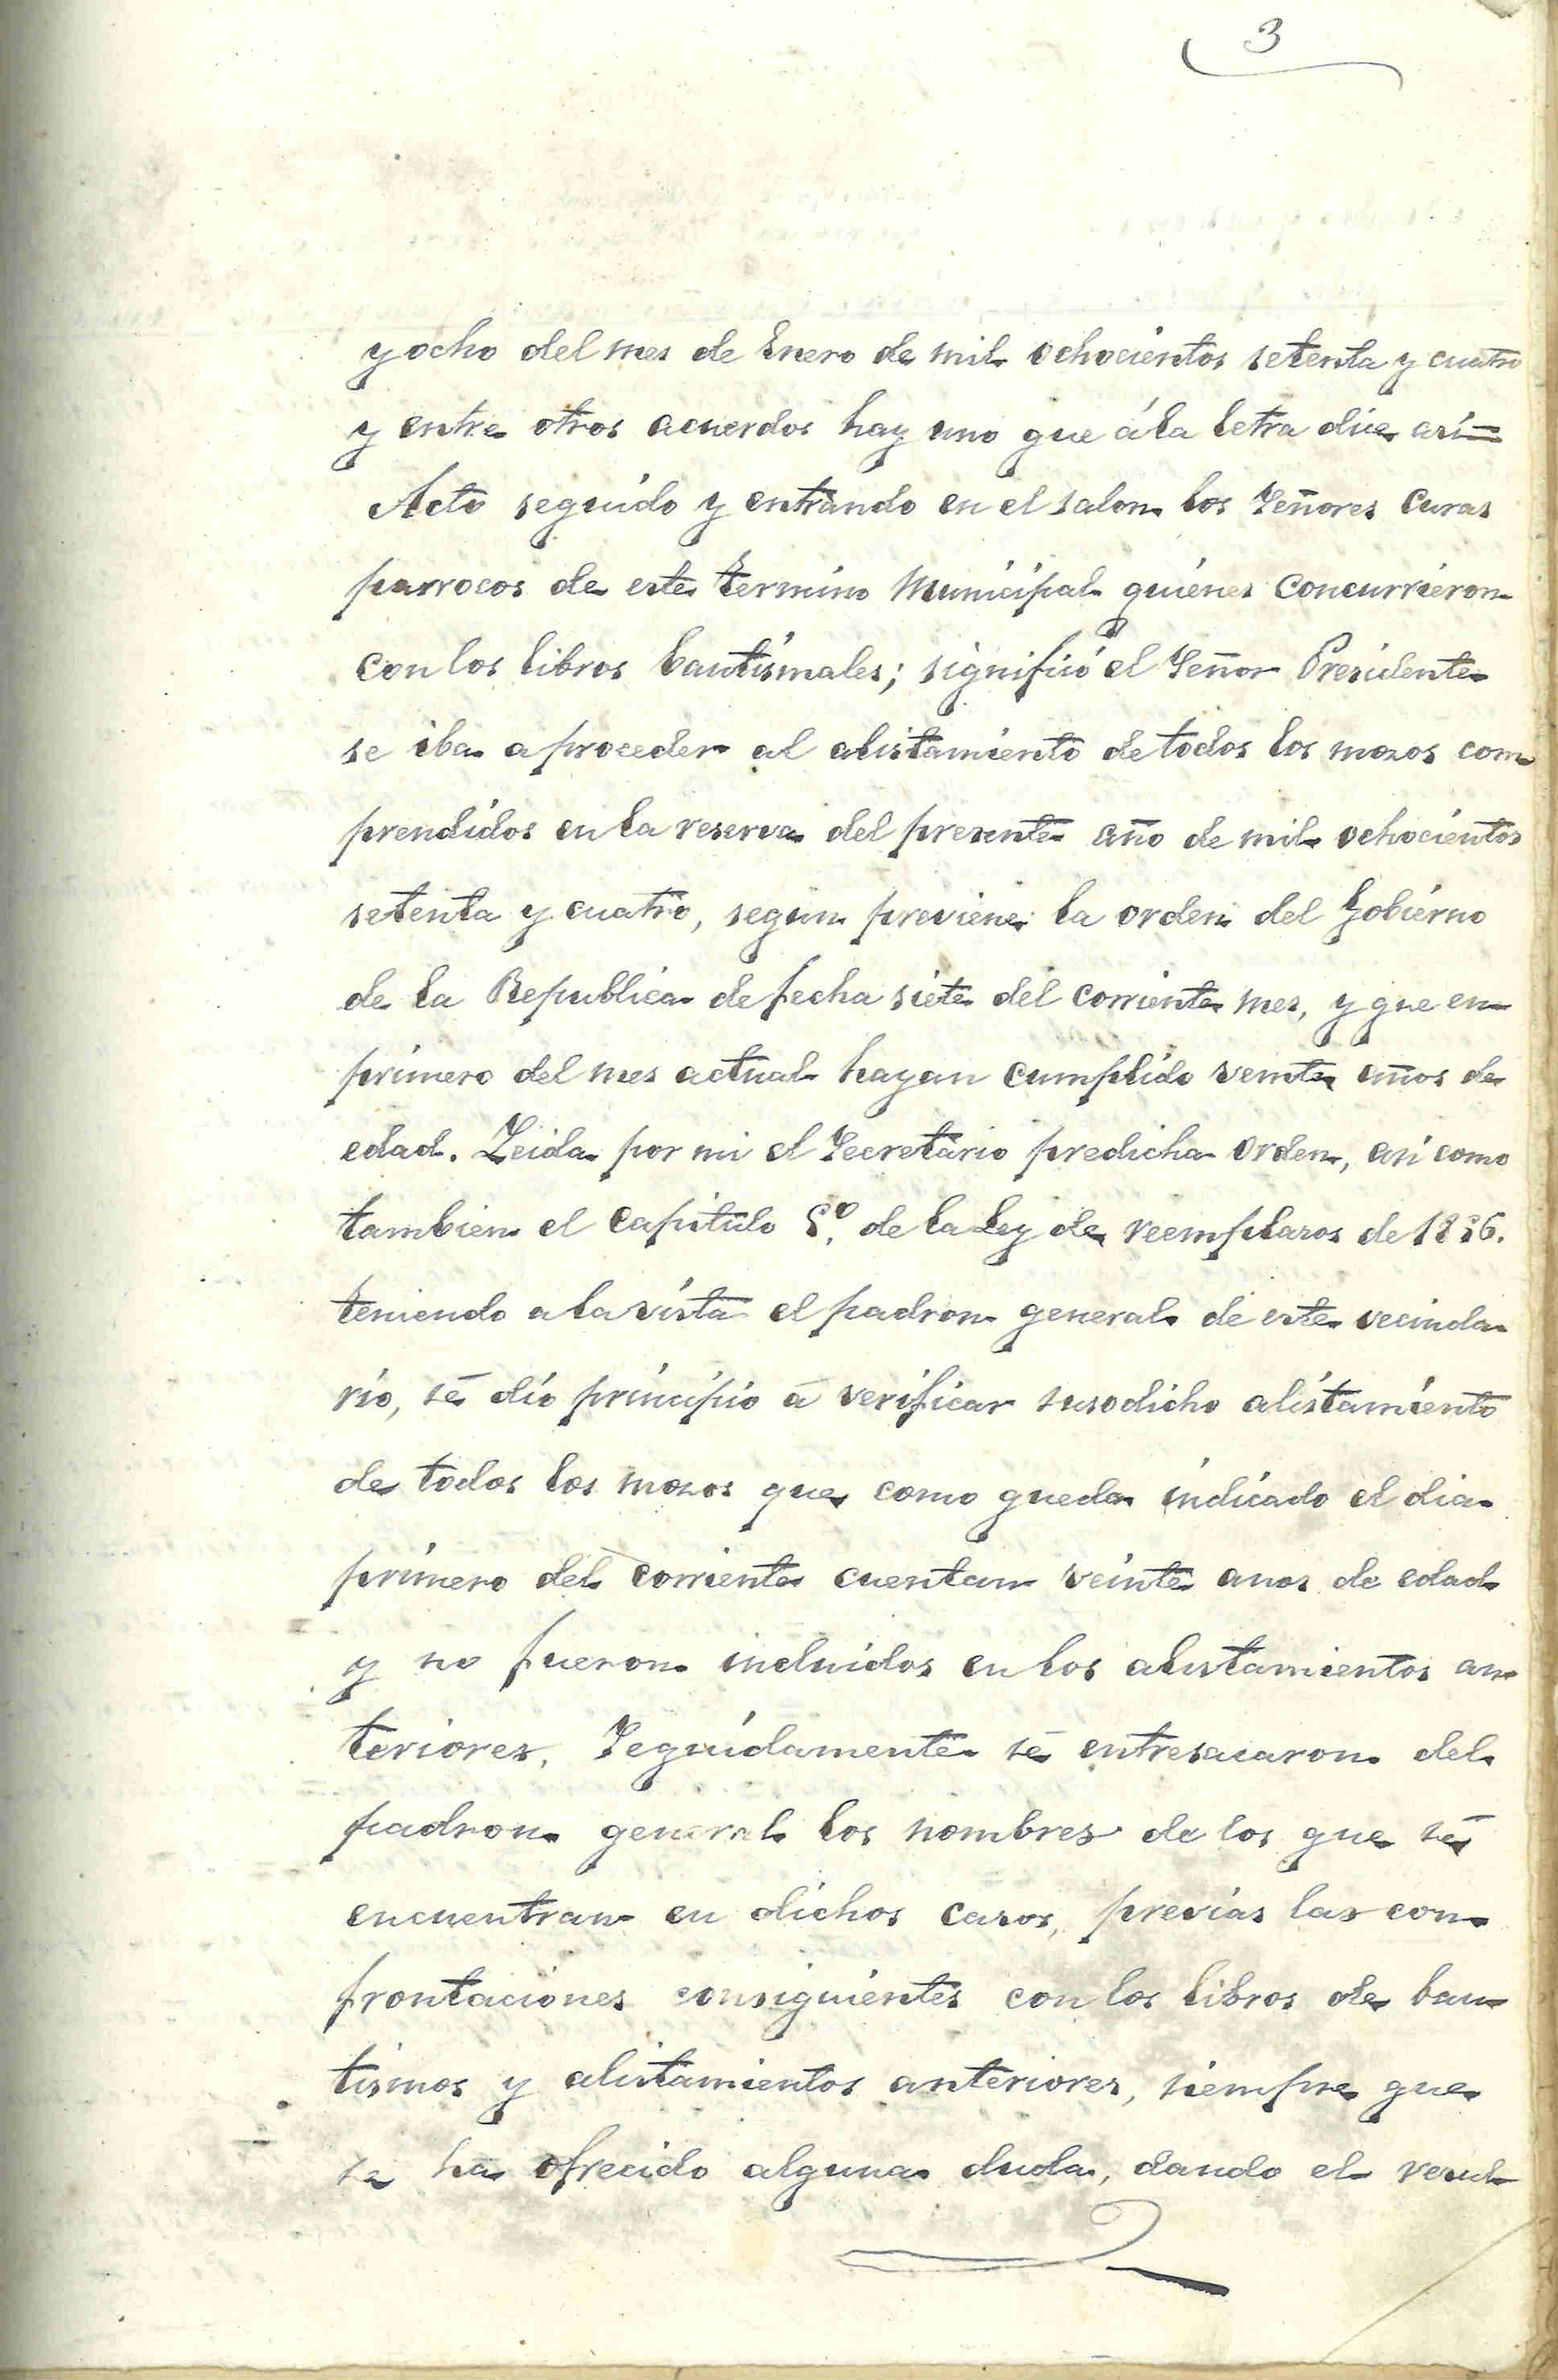 3
y ocho del mes de Enero de mil ochocientos setenta y cuatro
y entre otros acuerdos hay uno que á la letra dice así=
Acto seguido y entrando en el salon los Señores Curas
parrocos de este termino Municipal quiénes concurrieron
con los libros bautismales; significó el Señor Presidente
se iba a proceder al alistamiento de todos los mozos com
prendidos en la reserva del presente año de mil ochocientos
setenta y cuatro, segun previene la orden del Gobierno
de la Republica de fecha siete del corriente mes, y que en
primero del mes actual hayan cumplido veinte años de
edad. Leida por mi el Secretario predicha orden, asi como
tambien el capitulo 5º. de la Ley de reemplazos de 1856.
teniendo a la vista el padron general de este vecinda
rio, se dio principio a verificar susodicho alistamiento
de todos los mozos que como queda indicado el dia
primero del corriente cuentan veinte anos de edad
y no fueron incluidos en los alistamientos an
teriores. Seguidamente se entresacaron del
padron general los nombres de los que se
encuentran en dichos casos, previas las con
frontaciones consiguientes con los libros de bau
tismos y alistamientos anteriores, siempre que
se ha ofrecido alguna duda, dando el resul